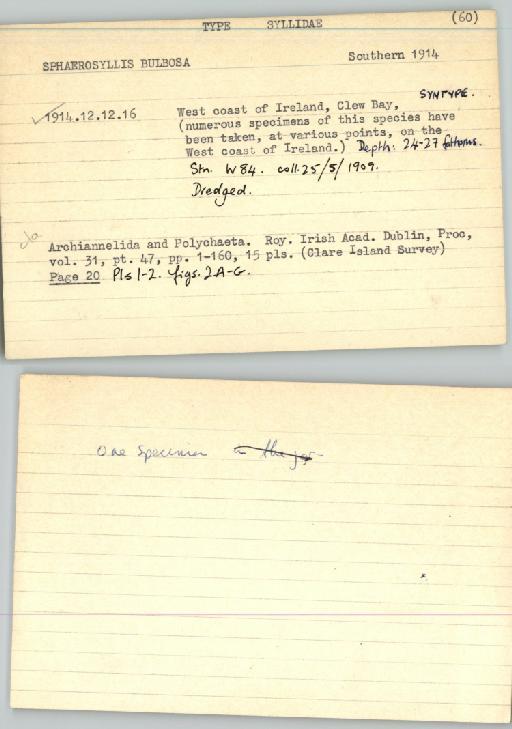 TYPE SYLLIDAE (60)
SPHAEROSYLLIS BULBOSA Southern 1914
SYNTYPE.
1914.12.12.16 West coast of Ireland, Clew Bay,
(numerous specimens of this species have
been taken, at various points, on the
West coast of Ireland.) Depth: 24-27 fathoms.
Stn. W84. coll. 25/5/1909.
Dredged.
Archiannelida and Polychaeta. Roy. Irish Acad. Dublin, Proc,
vol. 31, pt. 47, pp. 1-160, 15 pls. (Clare Island Survey)
Page 20 Pls 1-2. figs. 2A-G.
One specimen